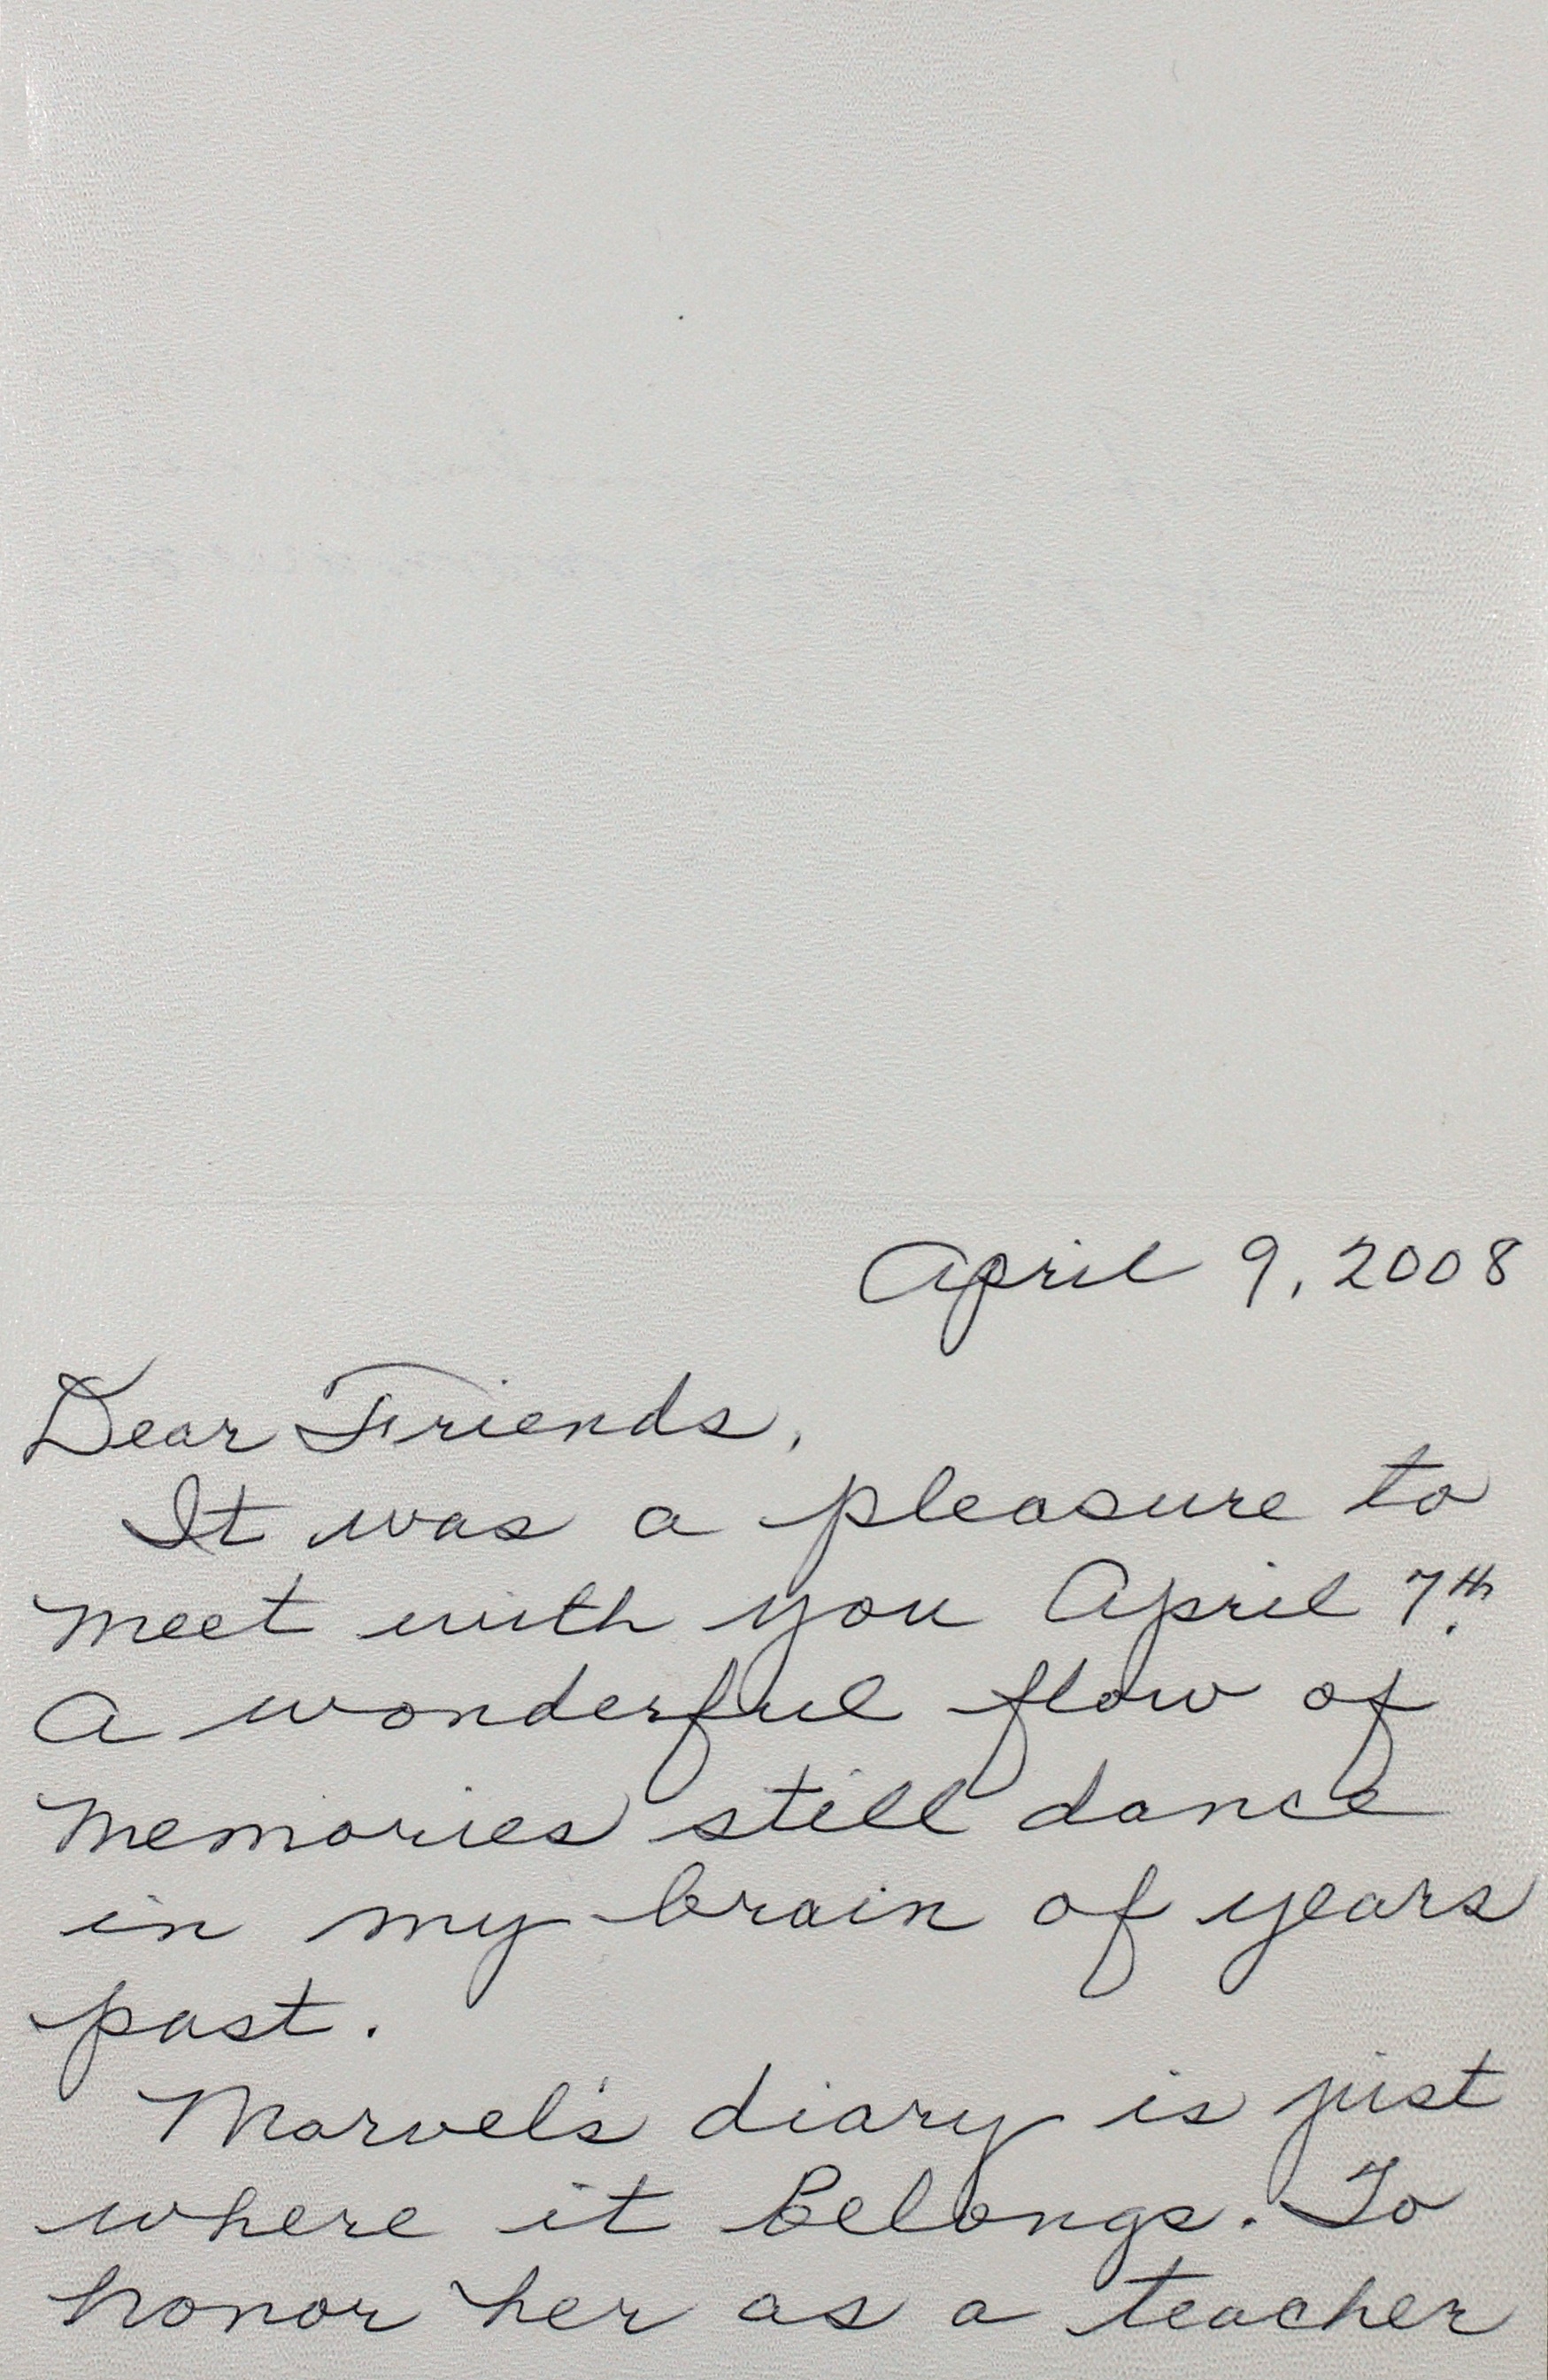 April 9, 2008
Dear Friends,
It was a pleasure to
meet with you April 7th.
A wonderful flow of
memories still dance
in my brain of years
past.
Marvel's diary is just
where it Belongs. To
honor her as a teacher